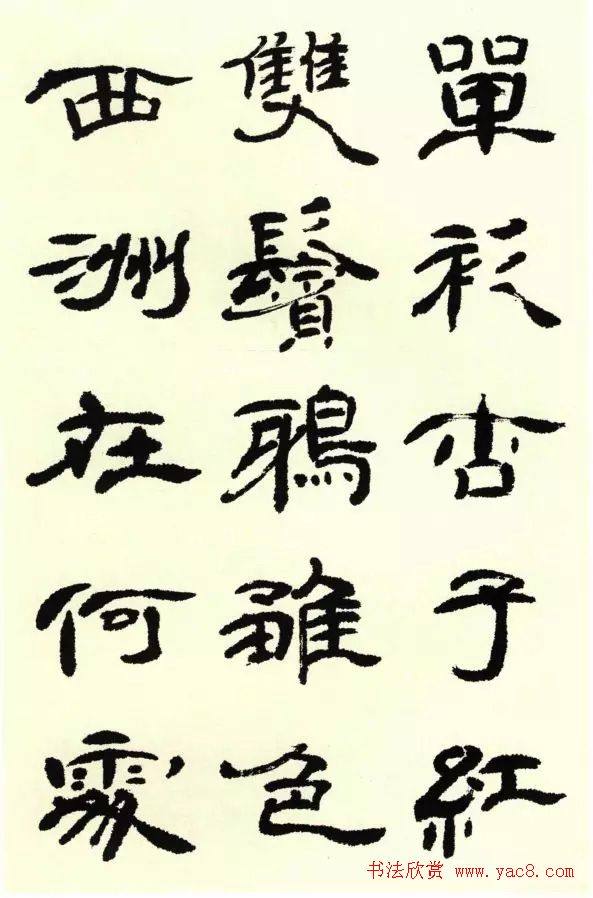 單衫杏子紅
雙鬢鴉雛色
西洲在何處
书法欣赏 www.yac8.com